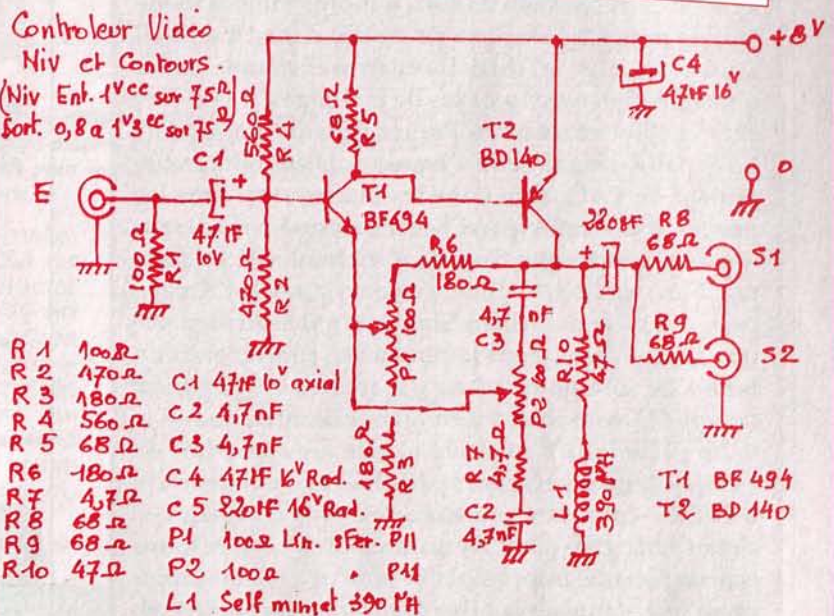 Controleur Video
Niv et Contours.
(Niv Ent. 1Vcc sur 75Ω)
Sort. 0,8 a 1V3cc sur 75Ω
+8V
C4
47µF 16V
0
560Ω
R4
68Ω
R5
T2
BD140
C1
+
T1
BF494
E
47µF
10V
100Ω
R1
470Ω
R2
R6
180Ω
+
220µF
R8
68Ω
S1
R9
68Ω
S2
P1 100Ω
4,7nF
C3
P2 100Ω
R10
47Ω
180Ω
R3
R7
4,7Ω
C2
4,7nF
L1
390µH
T1 BF 494
T2 BD 140
R1 100Ω
R2 470Ω
R3 180Ω
R4 560Ω
R5 68Ω
R6 180Ω
R7 4,7Ω
R8 68Ω
R9 68Ω
R10 47Ω
C1 47µF 10V axial
C2 4,7nF
C3 4,7nF
C4 47µF 16V Rad.
C5 220µF 16V Rad.
P1 100Ω Lin. sfer. P11
P2 100Ω " P11
L1 Self 390µH